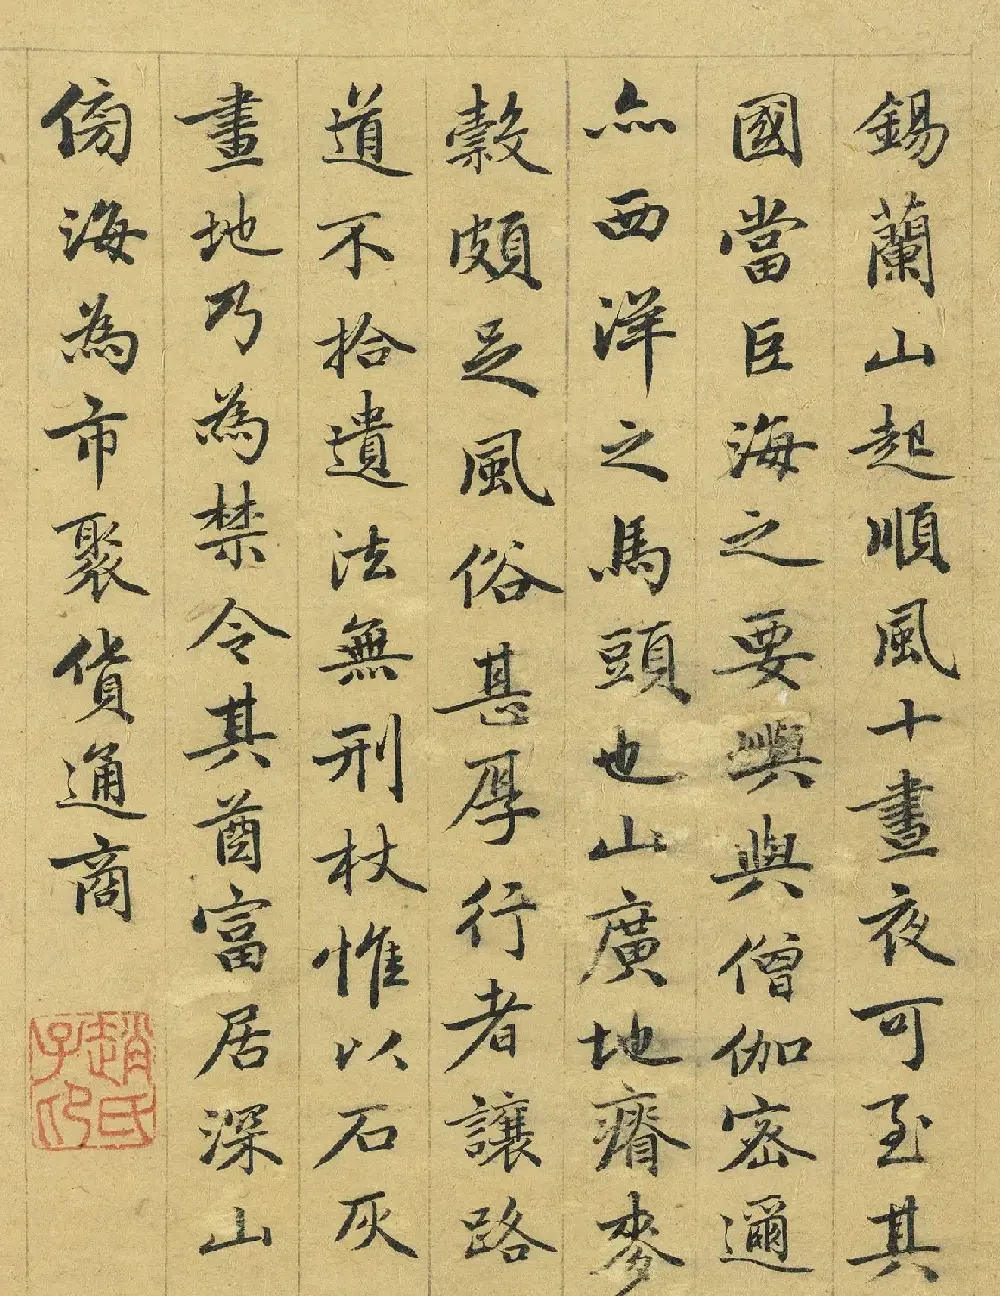 錫蘭山起順風十晝夜可至其
國當巨海之要嶼與僧伽密邇
亦西洋之馬頭也山廣地瘠麥
穀頗足風俗甚厚行者讓路
道不拾遺法無刑杖惟以石灰
畫地乃為禁令其酋富居深山
傍海為市聚貨通商
趙氏子印